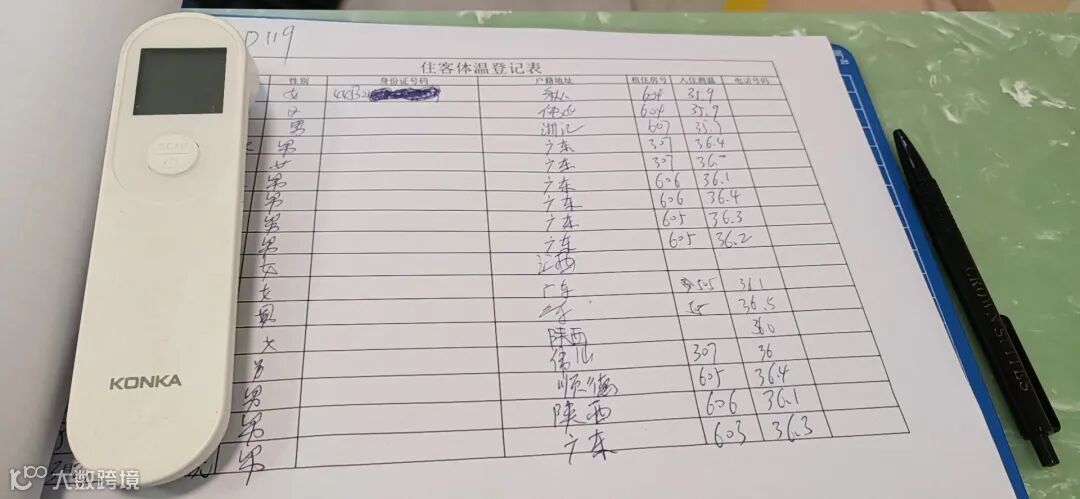 D119
住客体温登记表
性别 身份证号码 户籍地址 租住房号 入住测温 电话号码
女 604 35.9
604 35.9
男 浙江 607
男 广东 307 36.4
女 广东 307
男 广东 606 36.1
男 广东 606 36.4
男 广东 605 36.3
男 广东 605 36.2
女 江西
女 广东 505 36.1
男 36.5
女 陕西 36.0
男 佛山 307 36
男 顺德 605 36.4
男 陕西 606 36.1
男 广东 603 36.3
SCAN
KONKA
CROWN SUITES
大数跨境